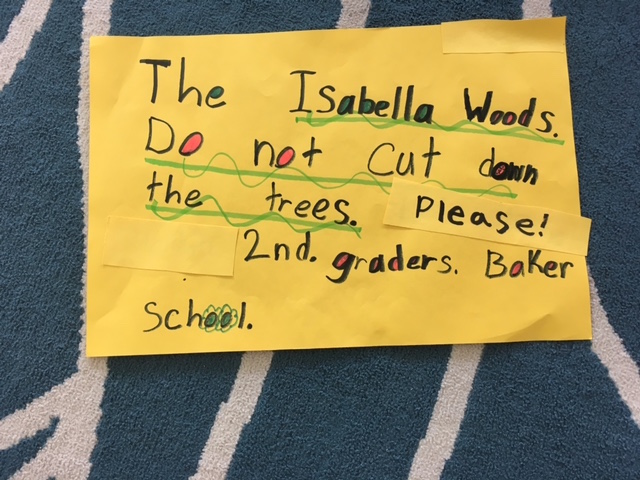 The Isabella Woods.
Do not cut down
the trees. Please!
2nd. graders. Baker
School.